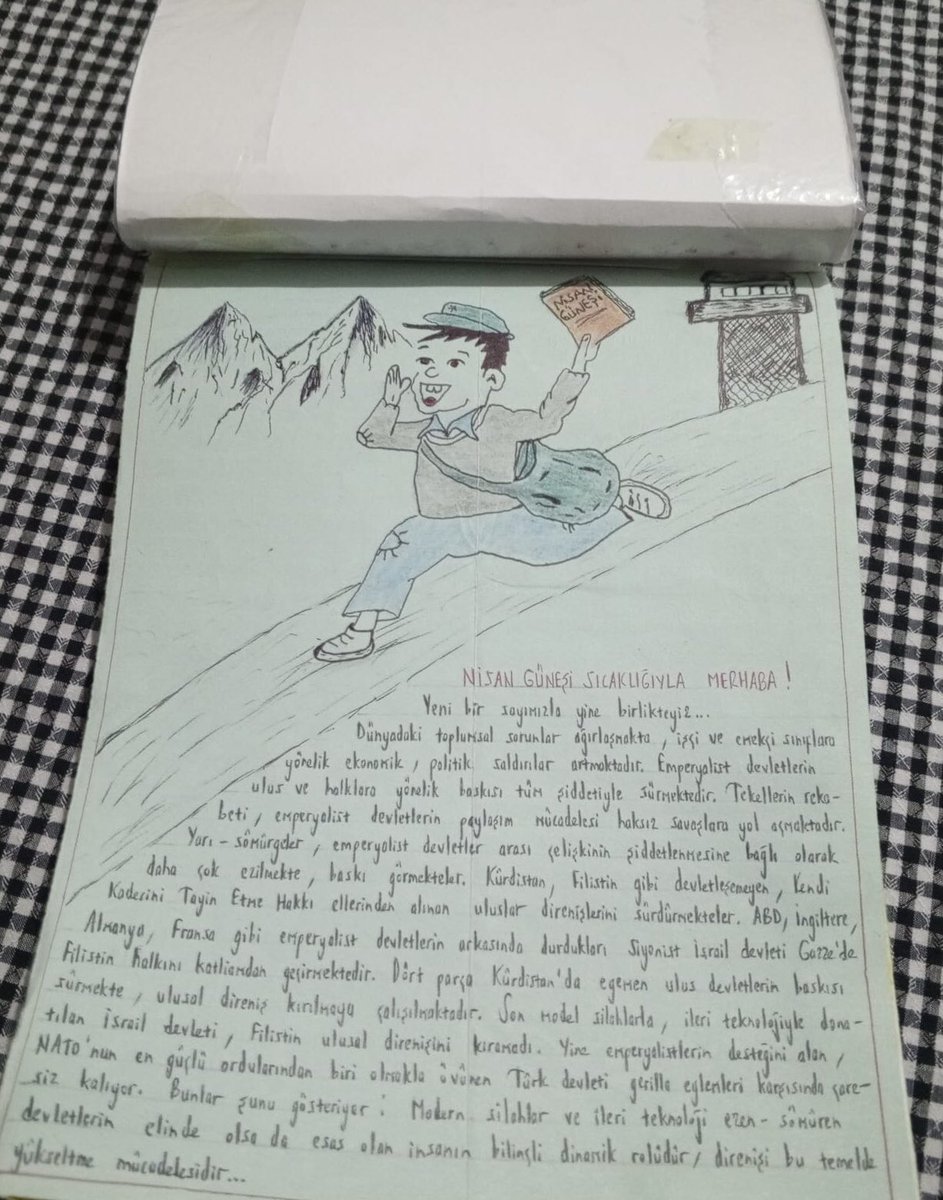 NİSAN GÜNEŞİ
NİSAN GÜNEŞİ SICAKLIĞIYLA MERHABA!
Yeni bir sayımızla yine birlikteyiz...
Dünyadaki toplumsal sorunlar ağırlaşmakta, işçi ve emekçi sınıflara
yönelik ekonomik, politik saldırılar artmaktadır. Emperyalist devletlerin
ulus ve halklara yönelik baskısı tüm şiddetiyle sürmektedir. Tekellerin reka-
beti, emperyalist devletlerin paylaşım mücadelesi haksız savaşlara yol açmaktadır.
Yarı-sömürgeler, emperyalist devletler arası çelişkinin şiddetlenmesine bağlı olarak
daha çok ezilmekte, baskı görmekteler. Kürdistan, Filistin gibi devletleşemeyen, Kendi
Kaderini Tayin Etme Hakkı ellerinden alınan uluslar direnişlerini sürdürmekteler. ABD, İngiltere,
Almanya, Fransa gibi emperyalist devletlerin arkasında durdukları Siyonist İsrail devleti Gazze'de
Filistin halkını katliamdan geçirmektedir. Dört parça Kürdistan'da egemen ulus devletlerin baskısı
sürmekte, ulusal direniş kırılmaya çalışılmaktadır. Son model silahlarla, ileri teknolojiyle dona-
tılan İsrail devleti, Filistin ulusal direnişini kıramadı. Yine emperyalistlerin desteğini alan,
NATO'nun en güçlü ordularından biri olmakla övünen Türk devleti gerilla eylenleri karşısında çare-
siz kalıyor. Bunlar şunu gösteriyor: Modern silahlar ve ileri teknoloji ezen-sömüren
devletlerin elinde olsa da esas olan insanın bilinçli dinamik rolüdür, direnişi bu temelde
yükseltme mücadelesidir...